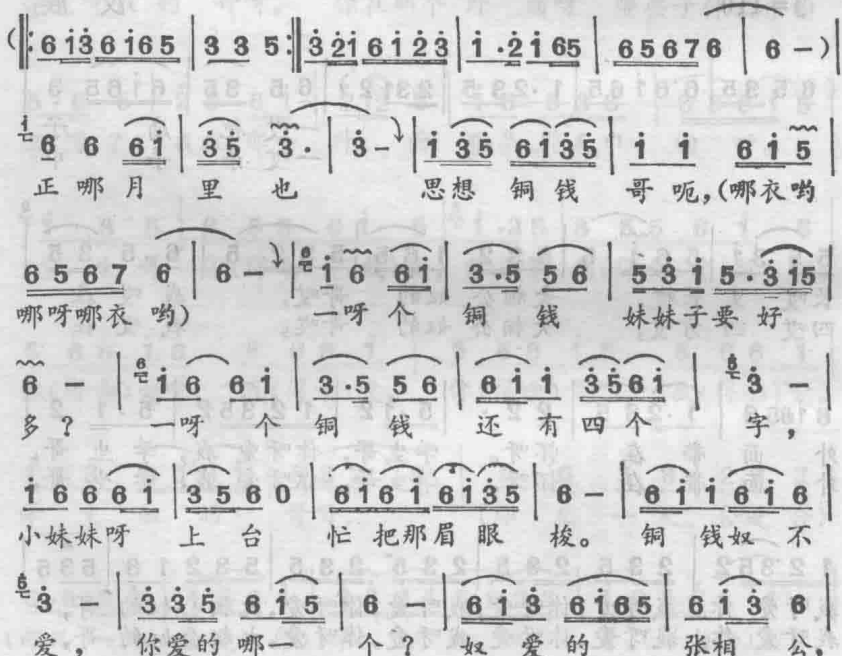 (‖: 6 i̇3̇ 6 i̇6 5 | 3 3 5 :‖ 3̇ 2̇i̇ 6 i̇ 2̇ 3̇ | i̇ ·2̇ i̇ 65 | 6 5 6 7 6 | 6 - ) |
i̇ 6 6 6i̇ | 3̇5̇ 3̇ · | 3̇ - | i̇ 3̇5̇ 6i̇3̇5̇ | i̇ i̇ 6 i̇ 5 |
正哪月 里 也 思想 铜钱 哥呃,(哪衣哟
6 5 6 7 6 | 6 - | 6 i̇ 6 6i̇ | 3·5 56 | 5 3 1 5·3̇ i̇5 |
哪呀哪衣 哟) 一呀个 铜 钱 妹妹子要好
6 - | 6 i̇6 6i̇ | 3·5 5 6 | 6 i̇ i̇ 3̇5̇6i̇ | 6 3̇ - |
多? 一呀 个 铜 钱 还 有四个 字,
i̇ 6 6 6 i̇ | 3 5 6 0 | 6i̇6i̇ 6i̇3̇5̇ | 6 - | 6 i̇ i̇ 6 i̇ 6 |
小妹妹呀 上台 忙把那眉眼 梭。 铜 钱奴 不
6 3̇ - | 3̇ 3̇ 5̇ 6 i̇ 5 | 6 - | 6 i̇ 3̇ 6i̇65 | 6 i̇3̇ 6 |
爱, 你爱的哪一 个? 奴 爱的 张相 公,